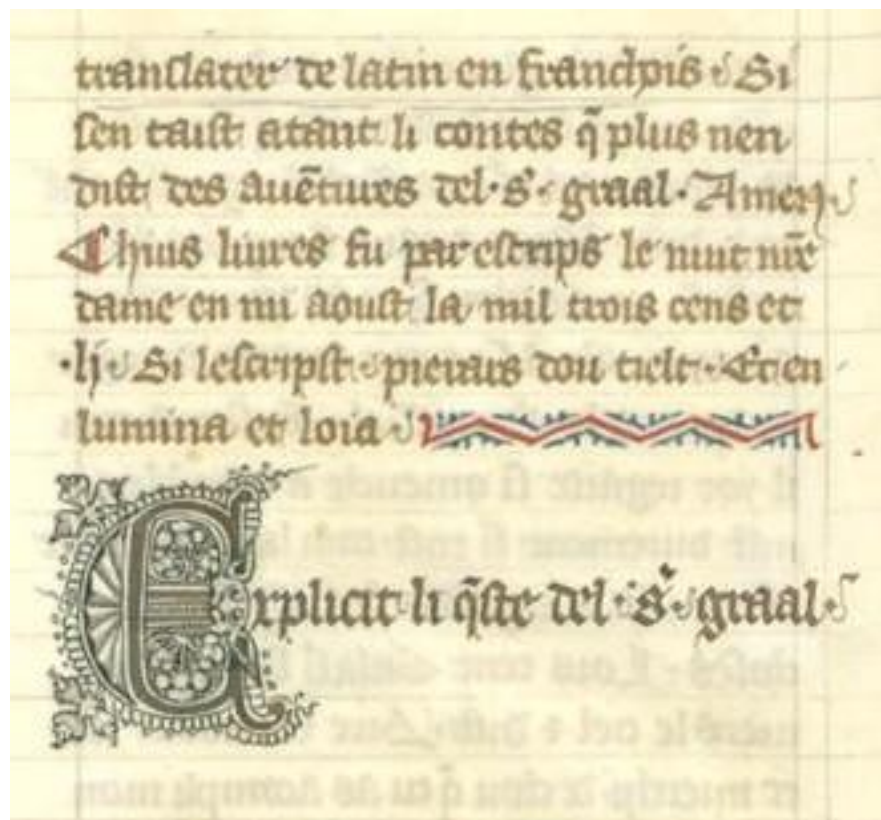 translater de latin en franchois . Si
sen taist atant li contes q̃ plus nen
dist des auẽtures del . s͛ . graal . Amen
Chius liures fu par escrips le nuit nr̃e
dame en mi aoust la mil trois cens et
.lj . Si lescripst . pierars dou tielt . Et en
lumina et loia
Explicit li q̃ste del . s͛ . graal .